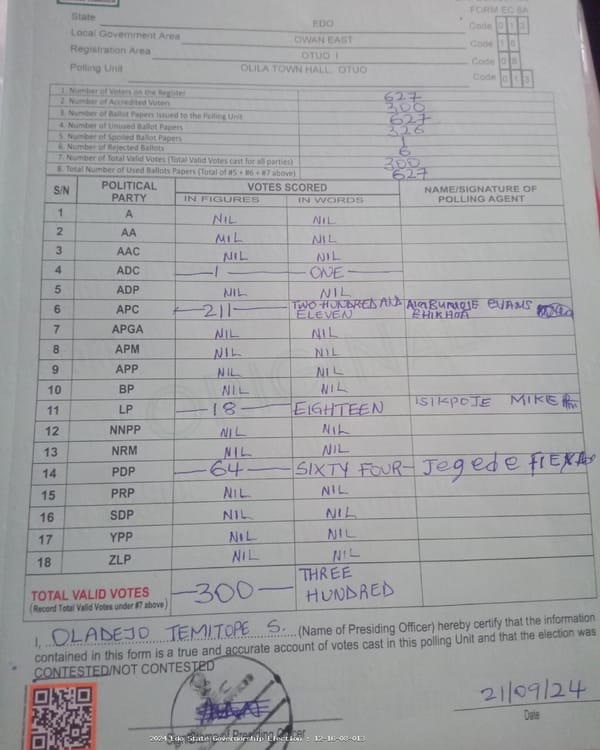 FORM EC 8A
State EDO Code 0 1 2
Local Government Area OWAN EAST Code 1 6
Registration Area OTUO I Code 0 8
Polling Unit OLILA TOWN HALL, OTUO Code 0 1 3
1. Number of Voters on the Register 627
2. Number of Accredited Voters 300
3. Number of Ballot Papers Issued to the Polling Unit 627
4. Number of Unused Ballot Papers 326
5. Number of Spoiled Ballot Papers 1
6. Number of Rejected Ballots 6
7. Number of Total Valid Votes (Total Valid Votes cast for all parties) 300
8. Total Number of Used Ballots Papers (Total of #5 + #6 + #7 above) 627
S/N POLITICAL PARTY VOTES SCORED NAME/SIGNATURE OF POLLING AGENT
IN FIGURES IN WORDS
1 A NIL NIL
2 AA NIL NIL
3 AAC NIL NIL
4 ADC 1 ONE
5 ADP NIL NIL
6 APC 211 TWO HUNDRED AND ELEVEN EVANS
7 APGA NIL NIL
8 APM NIL NIL
9 APP NIL NIL
10 BP NIL NIL
11 LP 18 EIGHTEEN ISIKPOJE MIKE
12 NNPP NIL NIL
13 NRM NIL NIL
14 PDP 64 SIXTY FOUR Jegede
15 PRP NIL NIL
16 SDP NIL NIL
17 YPP NIL NIL
18 ZLP NIL NIL
TOTAL VALID VOTES 300 THREE HUNDRED
(Record Total Valid Votes under #7 above)
I, OLADEJO TEMITOPE S. (Name of Presiding Officer) hereby certify that the information
contained in this form is a true and accurate account of votes cast in this polling Unit and that the election was
CONTESTED/NOT CONTESTED
21/09/24
Date
2024 Edo State Governorship Election : 12-16-08-013